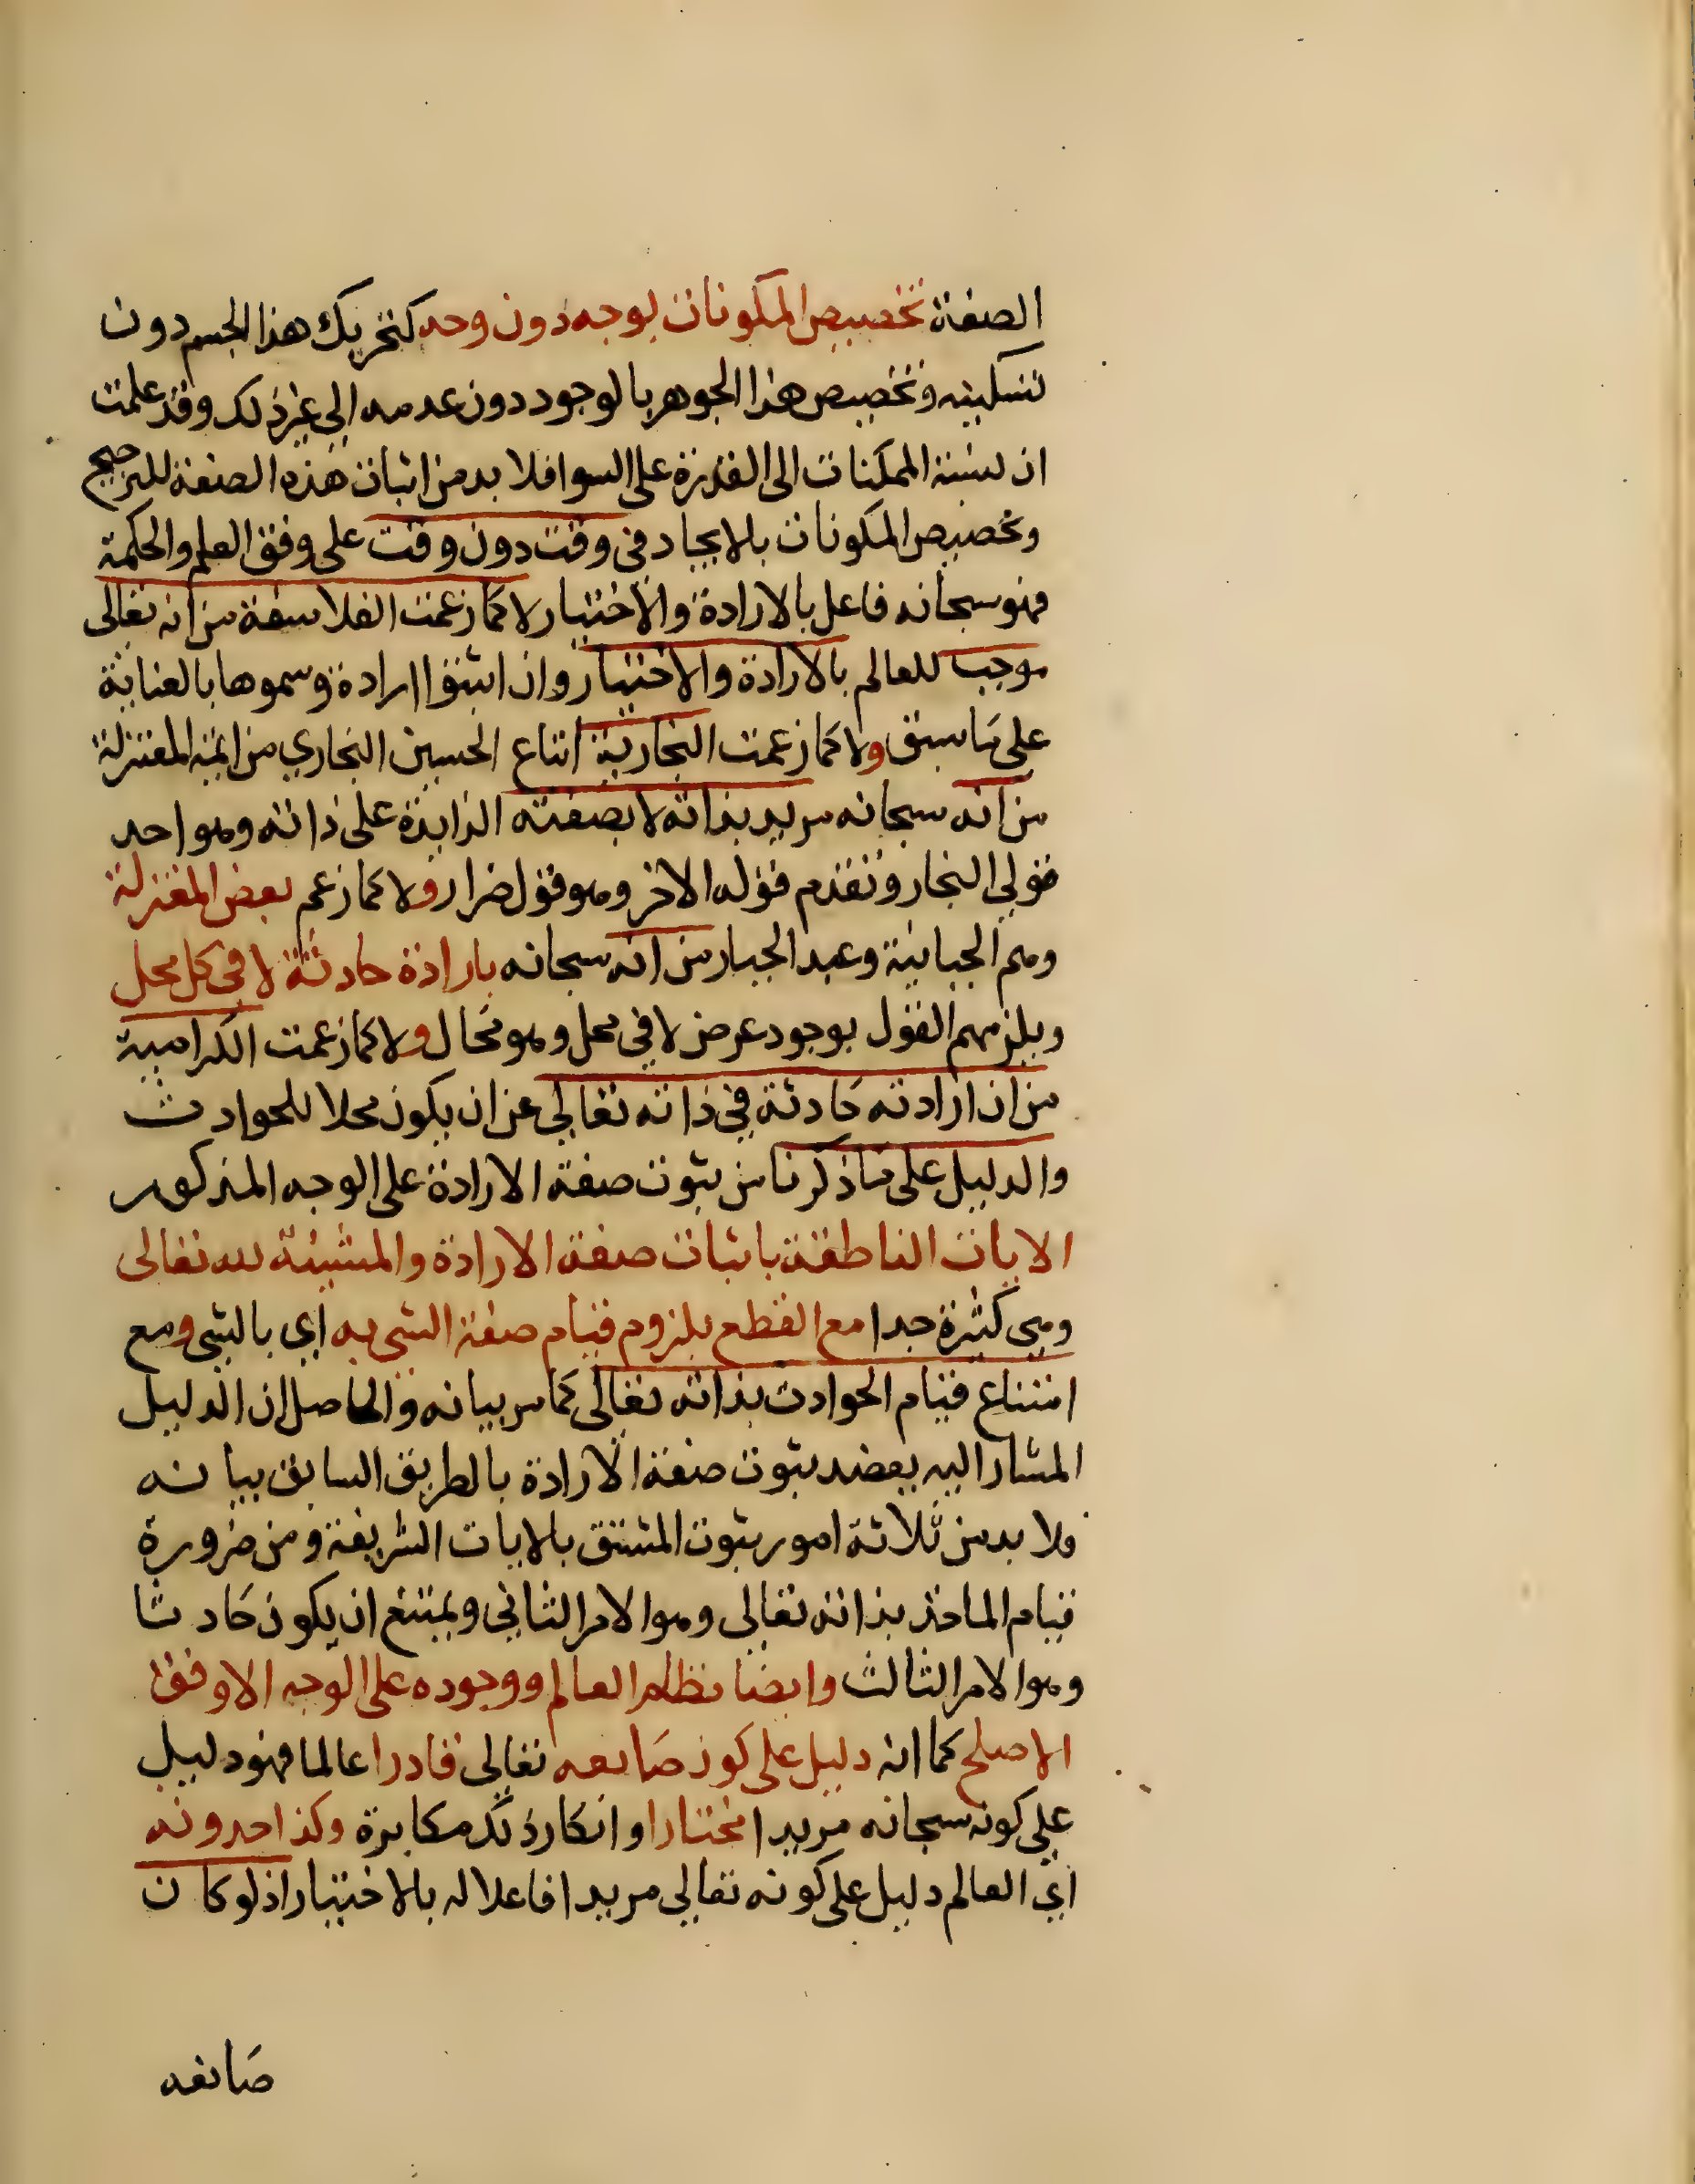 الصفة تخصيص المكونات بوجه دون وجه كتحريك هذا الجسم دون
تسكينه وتخصيص هذا الجوهر بالوجود دون عدمه الى غير ذلك وقد علمت
ان نسبة الممكنات الى القدرة على السوا فلا بد من اثبات هذه الصفة للترجيح
وتخصيص المكونات بالايجاد في وقت دون وقت على وفق العلم والحكمة
فهو سبحانه فاعل بالارادة والاختيار لا كما زعمت الفلاسفة من انه تعالى
موجب للعالم بالارادة والاختيار وان اثبتوا ارادة وسموها بالعناية
على ما سبق ولا كما زعمت النجارية اتباع الحسين النجاري من ايمة المعتزلة
من انه سبحانه مريد بذاته لا بصفته الزايدة على ذاته وهو احد
قولي النجار وتقدم قوله الاخر وهو قول ضرار ولا كما زعم بعض المعتزلة
وهم الجبائية وعبد الجبار من انه سبحانه بارادة حادثة لا في كل محل
ويلزمهم القول بوجود عرض لا في محل وهو محال ولا كما زعمت الكرامية
من ان ارادته حادثة في ذاته تعالى عن ان يكون محلا للحوادث
والدليل على ما ذكرنا من ثبوت صفة الارادة على الوجه المذكور
الايات الناطقة باثبات صفة الارادة والمشيئة لله تعالى
وهي كثيرة جدا مع القطع بلزوم قيام صفة الشي به اي بالشي ومع
امتناع قيام الحوادث بذاته تعالى كما مر بيانه والحاصل ان الدليل
المشار اليه يعضد ثبوت صفة الارادة بالطريق السابق بيانه
ولا بد من ثلاثة امور ثبوت المشتق بالايات الشريفة ومن ضرورة
قيام الماخذ بذاته تعالى وهو الامر الثاني ويمتنع ان يكون حادثا
وهو الامر الثالث وايضا نظام العالم ووجوده على الوجه الاوفق
الاصلح كما انه دليل على كون صانعه تعالى قادرا عالما فهو دليل
على كونه سبحانه مريدا مختارا وانكار ذلك مكابرة وكذا حدوثه
اي العالم دليل على كونه تعالى مريدا فاعلا له بالاختيار اذ لو كان
صانعه